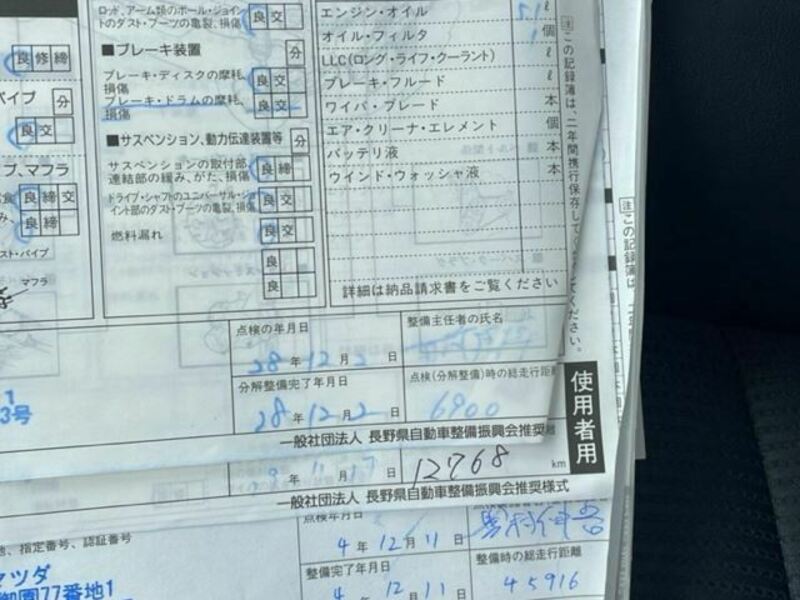 ロッド、アーム類のボール・ジョイン
トのダスト・ブーツの亀裂、損傷
良 交
■ブレーキ装置
分
ブレーキ・ディスクの摩耗、
損傷
良 交
ブレーキ・ドラムの摩耗、
損傷
良 交
■サスペンション、動力伝達装置等
分
サスペンションの取付部、
連結部の緩み、がた、損傷
良 締
ドライブ・シャフトのユニバーサル・ジョ
イント部のダスト・ブーツの亀裂、損傷
良 交
燃料漏れ
良 交
良
良
良 修 締
パイプ
分
良 交
プ、マフラ
良 締 交
良 締
スト・パイプ
マフラ
エンジン・オイル 5.1 ℓ
オイル・フィルタ 1 個
LLC(ロング・ライフ・クーラント) ℓ
ブレーキ・フルード ℓ
ワイパ・ブレード 本
エア・クリーナ・エレメント 個
バッテリ液 本
ウインド・ウォッシャ液 本
詳細は納品請求書をご覧ください
注 この記録簿は、二年間携行保存してください。
注 この記録簿は、二年間
点検の年月日
28年12月2日
整備主任者の氏名
分解整備完了年月日
28年12月2日
点検(分解整備)時の総走行距離
6900
1
3号
一般社団法人 長野県自動車整備振興会推奨
使用者用
29年11月17日
12768 km
一般社団法人 長野県自動車整備振興会推奨様式
点検年月日
4年12月11日
地、指定番号、認証番号
マツダ
御園77番地1
整備完了年月日
4年12月11日
整備時の総走行距離
45916